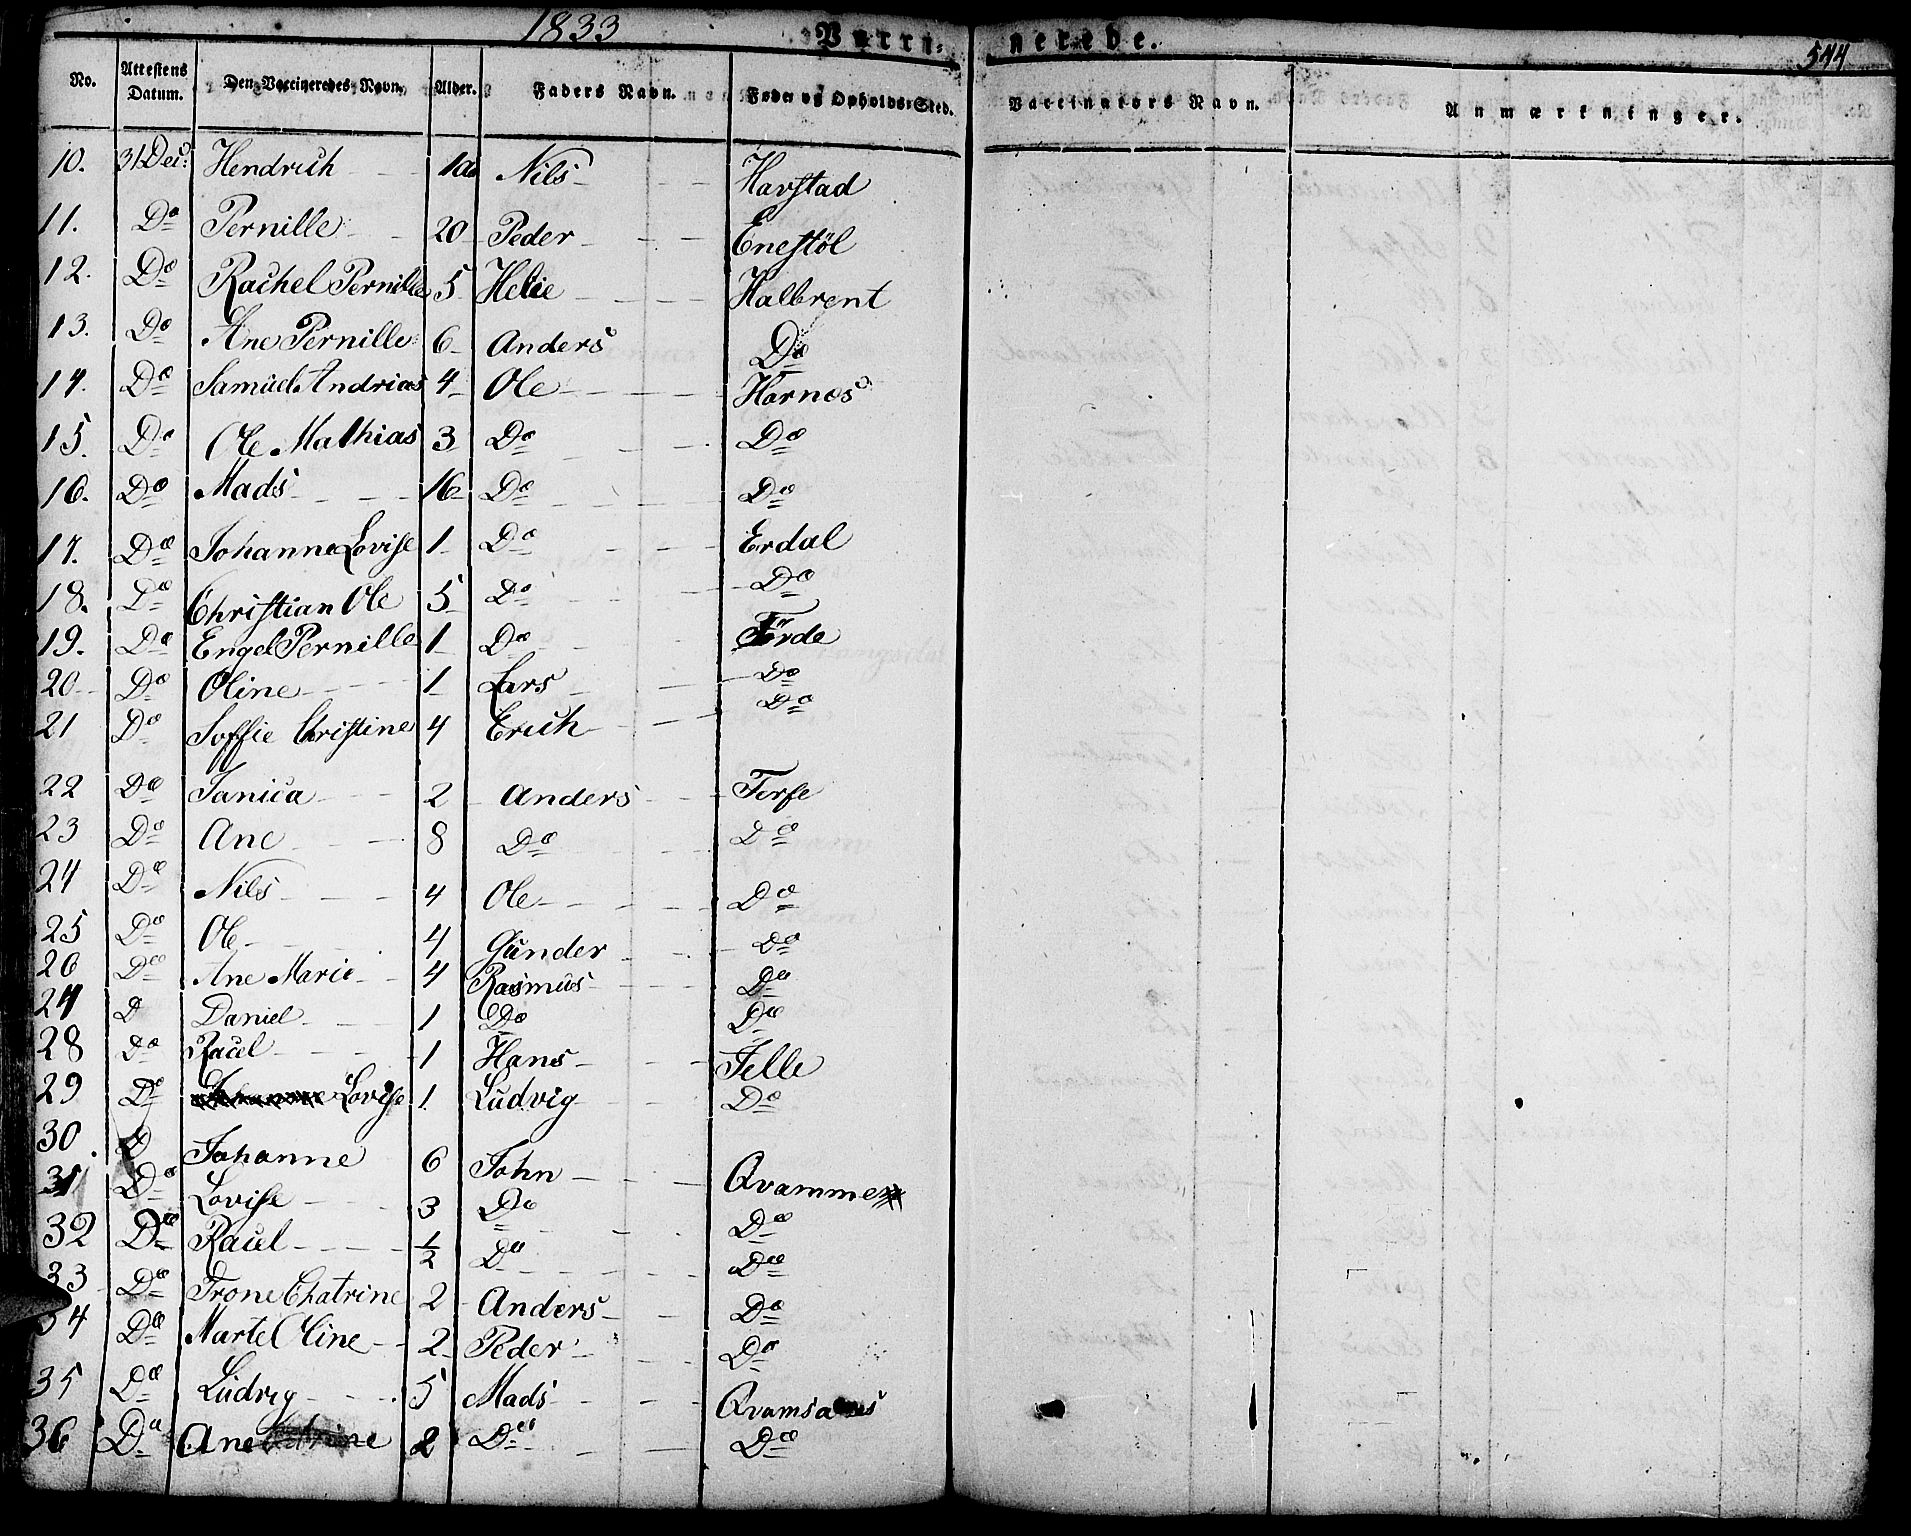 1833 Vacci- nerede. 544
No. Attestens Datum. Den Vaccineredes Navn. Alder. Faders Navn. Føde og Opholds-Sted. Vaccinators Navn. Anmærkninger.
10. 31 Dec: Hendrich Nils Havstad
11. Do Pernille 20 Peder Enestöl
12. Do Rachel Pernille 5 Helie Halbrent
13. Do Ane Pernille 6 Anders Do
14. Do Samuel Andrias 4 Ole Hornes
15. Do Ole Mathias 3 Do Do
16. Do Mads 16 Do Do
17. Do Johanne Lovise 1 Do Erdal
18. Do Christian Ole 5 Do Do
19. Do Engel Pernille 1 Do Förde
20 Do Oline 1 Lars Do
21 Do Soffie Christine 4 Erich Do
22 Do Janica 2 Anders Terfe
23 Do Ane 8 Do Do
24 Do Nils 4 Ole Do
25 Do Ole 4 Gunder Do
26 Do Ane Marie 4 Rasmus Do
27 D Daniel 1 Do Do
28 Do Raül 1 Hans Felle
29 Do Lovise 1 Ludvig Do
30. D Johanne 6 John Qvamme
31 Do Lovise 3 Do Do
32 Do Raül 1/2 Do Do
33 Do Trone Chatrine 2 Anders Do
34 Do Marte Oline 2 Peder Do
35 Do Ludvig 5 Mads
36 Do Ane 2 Do Do